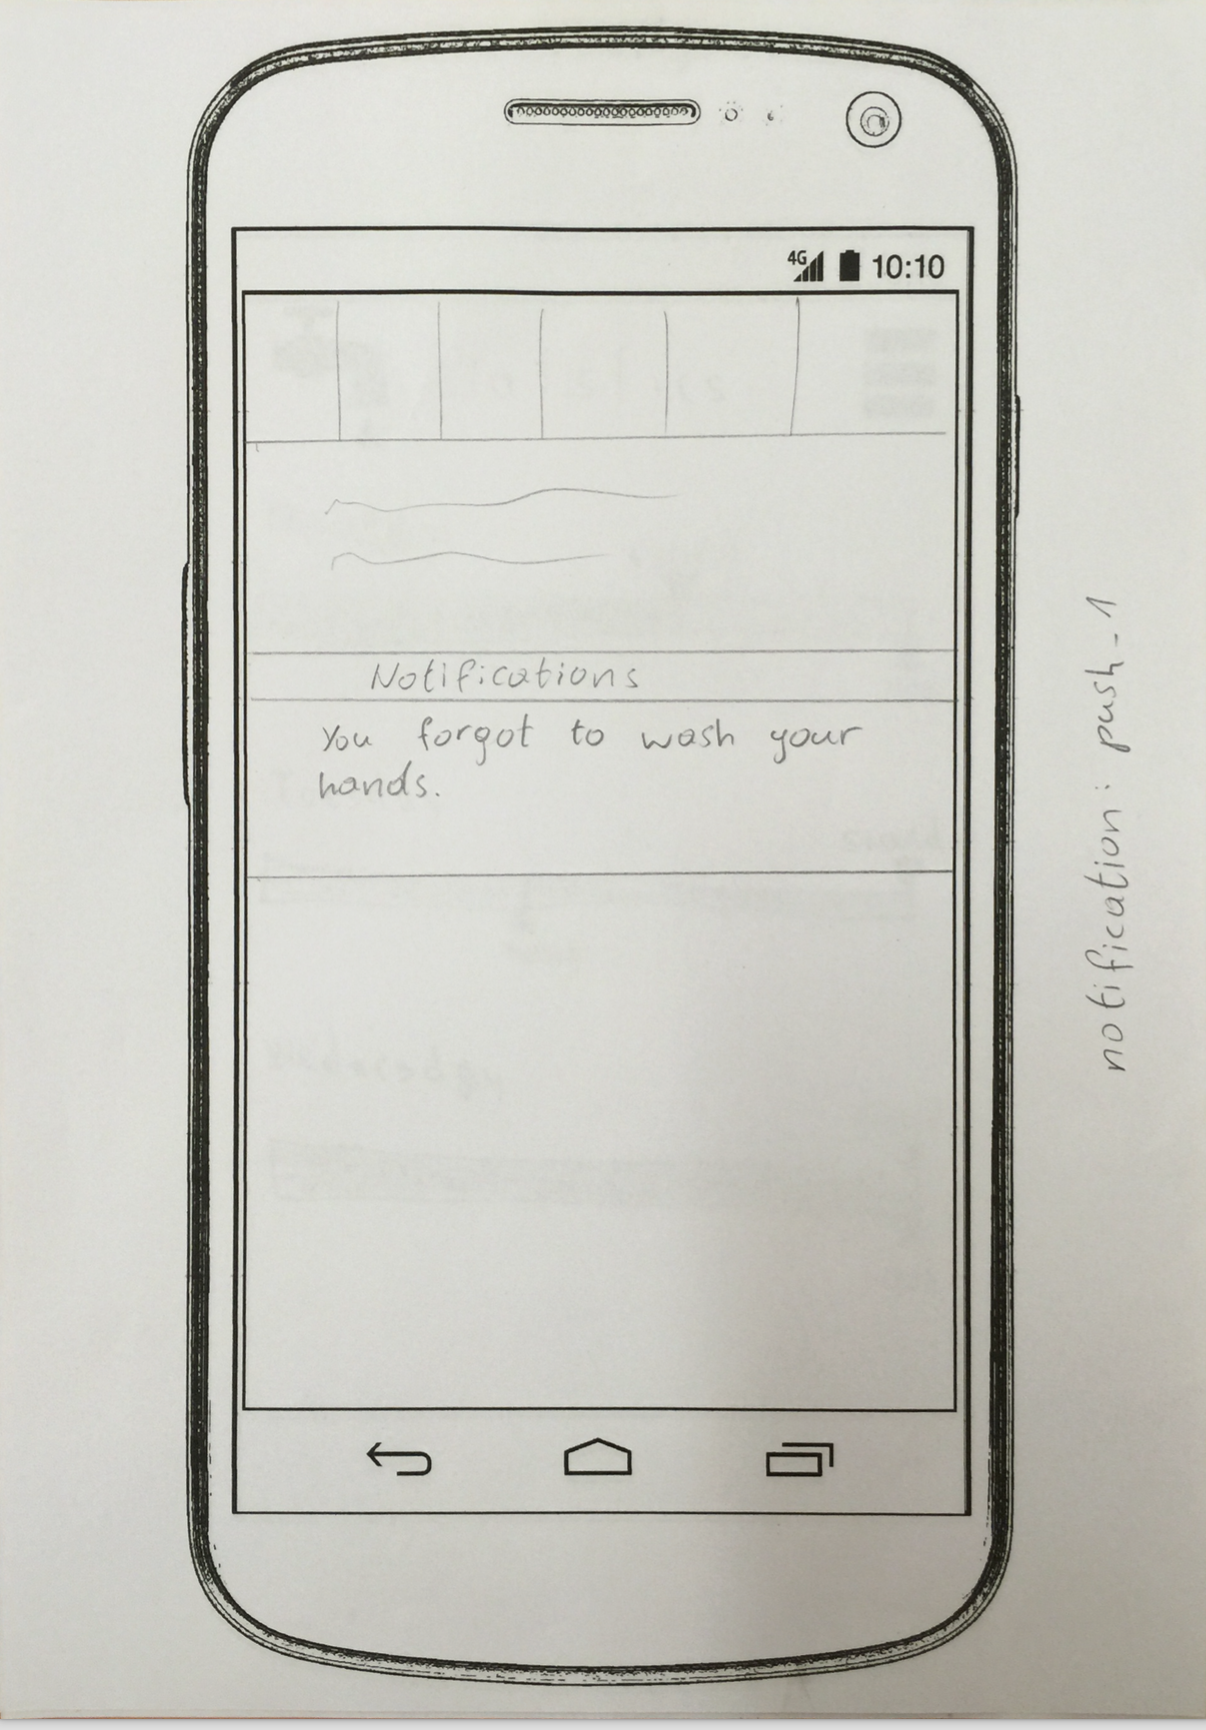 4G 10:10
Notifications
You forgot to wash your
hands.
notification: push_1